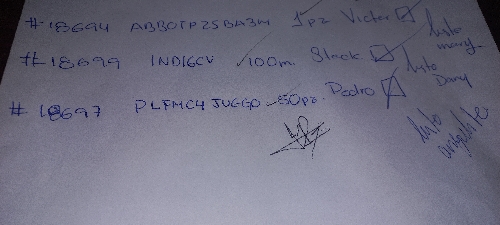 #18694 ABBOTPZSBA3M 1pz Victor
listo mary.
#18699 INDIGCV 100m. Slack
listo Dany
#18697 PLFMC4JUGGO 50pz. Pedro
listo